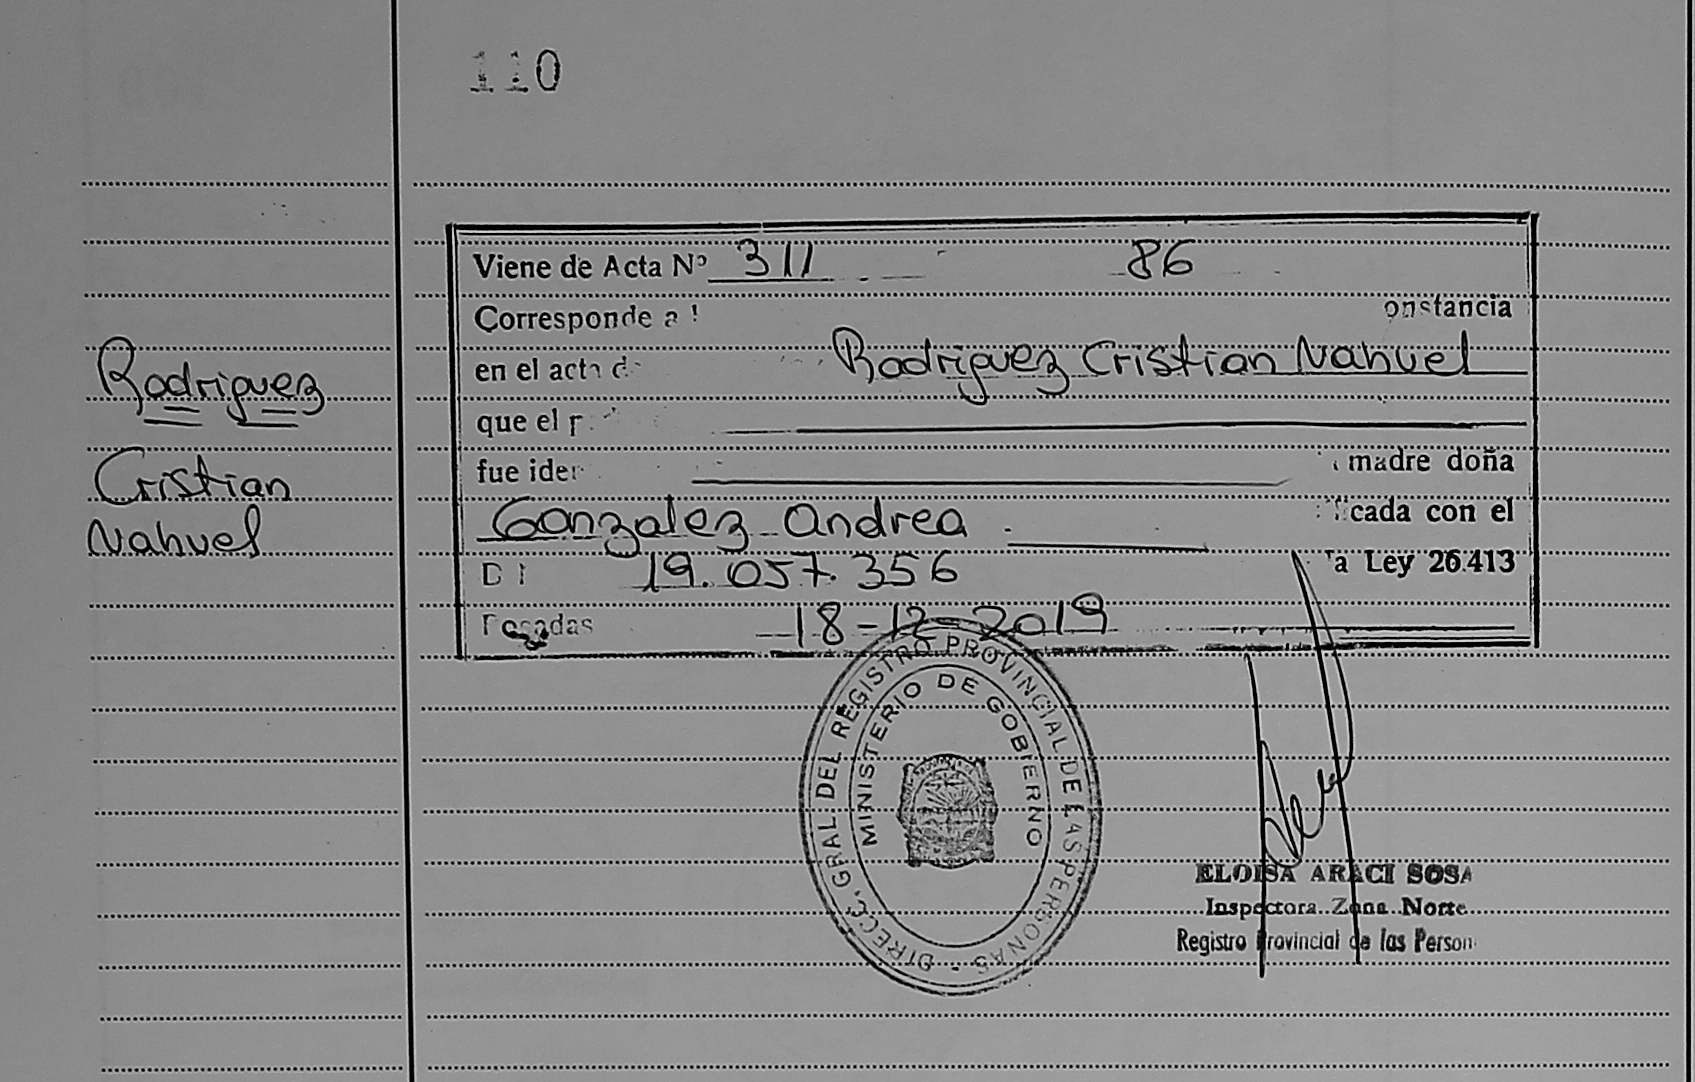 110
Viene de Acta Nº 311 86
Corresponde a onstancia
en el acta d Rodriguez Cristian Nahuel
que el
fue iden madre doña
Gonzalez Andrea cada con el
D 19.057.356 a Ley 26.413
Posadas 18-12-2019
Rodriguez
Cristian
Nahuel
DIRECC. GRAL. DEL REGISTRO PROVINCIAL DE LAS PERSONAS -
MINISTERIO DE GOBIERNO
ELOISA ARACI SOSA
Inspectora Zona Norte
Registro Provincial de las Person